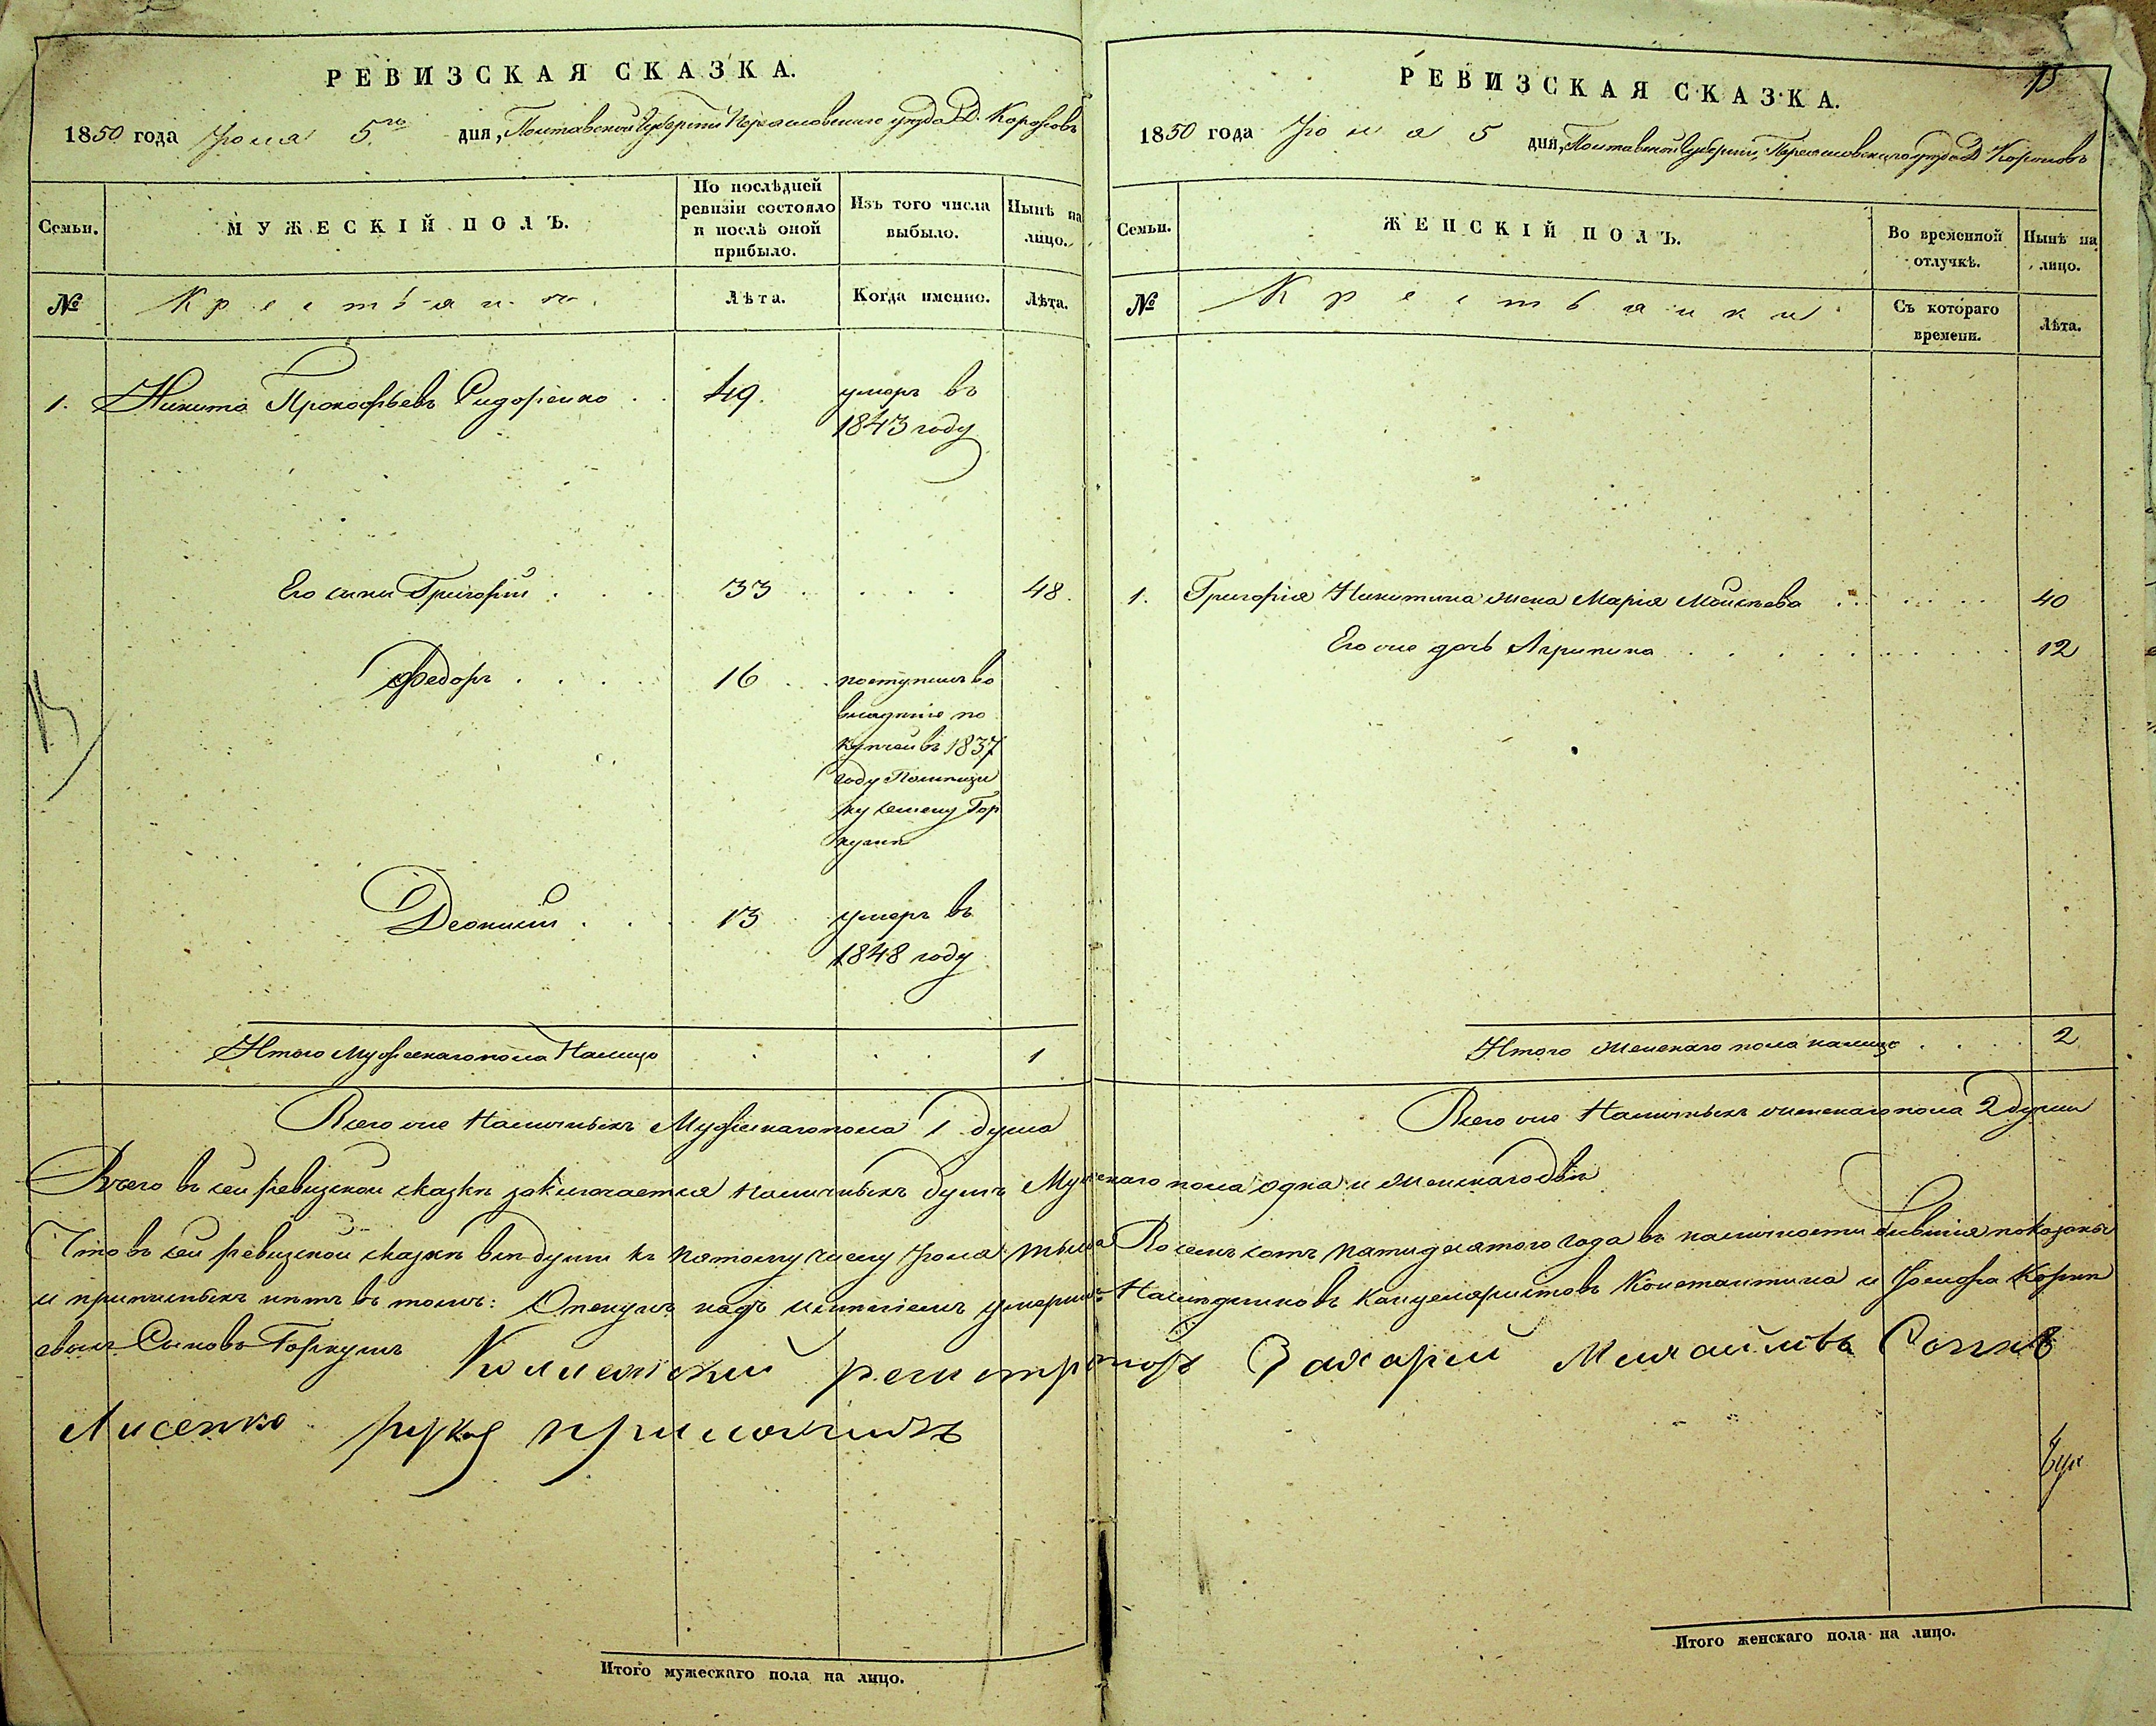 РЕВИЗСКАЯ СКАЗКА.
1850 года Іюня 5го дня, Полтавской Губерніи Переяславского уезда Д.
Семьи.
МУЖЕСКІЙ ПОЛЪ.
По послѣдней ревизіи состояло и послѣ оной прибыло.
Изъ того числа выбыло.
Нынѣ на лицо.
№
Крестьяни
Лѣта.
Когда именно.
Лѣта.
1. Никита Прокофьевъ Сидоренко 49. умеръ въ
1843 году
Его сыни Григорій 33 48.
Федоръ 16 поступилъ во
владѣніе по
купчей въ 1837
году Помѣщи
ку Гор
куши
13 умеръ въ
1848 году
Итого Мужескаго пола Налицо 1
Всего же Наличныхъ Мужескаго пола 1 душа
РЕВИЗСКАЯ СКАЗКА.
1850 года Іюня 5 дня, Полтавской Губерніи, Переяславского уезда Д
Семьи.
ЖЕНСКІЙ ПОЛЪ.
Во временной отлучкѣ.
Нынѣ на лицо.
№
Крестьянки
Съ котораго времени.
Лѣта.
1. Григорія Никитина жена Марія Моисѣева 40
Его же дочь Агрипина 12
Итого Женскаго пола налицо 2
Всего же Наличныхъ женскаго пола 2 души
Всего въ сей ревизской сказкѣ заключается наличныхъ душъ Мужескаго пола одна и Женскаго двѣ
Что въ сей ревизской сказкѣ всѣ души къ пятому числу Іюня тысяча Восемъ сотъ пятидесятого года въ наличности бывшія показаны
и прописныхъ нѣтъ въ томъ: Опекунъ надъ имѣніемъ умершихъ Наследниковъ Канцеляристовъ Константина и
Сыновъ Горкушъ Коллежскій регистраторъ Захарій Михайловъ Сынъ
Лисенко руку приложилъ
Итого мужескаго пола на лицо.
Итого женскаго пола на лицо.